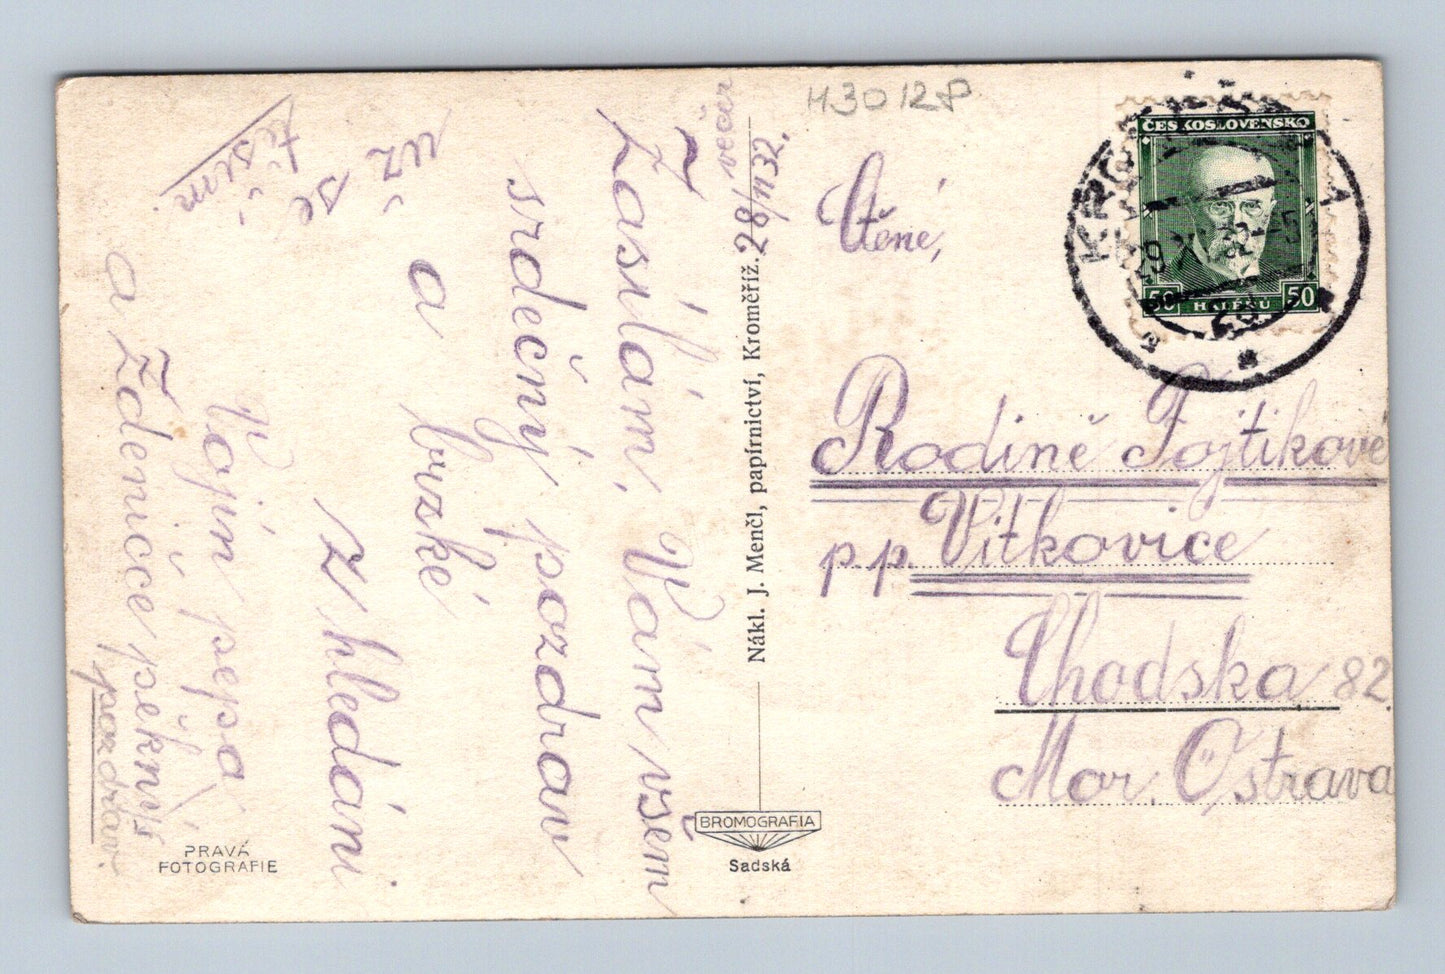 večer
28/11 32.
Zasílám Vám všem
srdečný pozdrav
a brzké
z hledání
už
se
těším.
Vojín pepa
a Zdenicce pěkný
pozdrav.
PRAVÁ
FOTOGRAFIE
Nákl. J. Menčl, papírnictví, Kroměříž.
BROMOGRAFIA
Sadská
H3012P
ČESKOSLOVENSKO
50 HALÉŘŮ 50
29 XI 32
Ctěné,
Rodině Fojtikové
p.p. Vitkovice
Chodska 82.
Mor. Ostrava